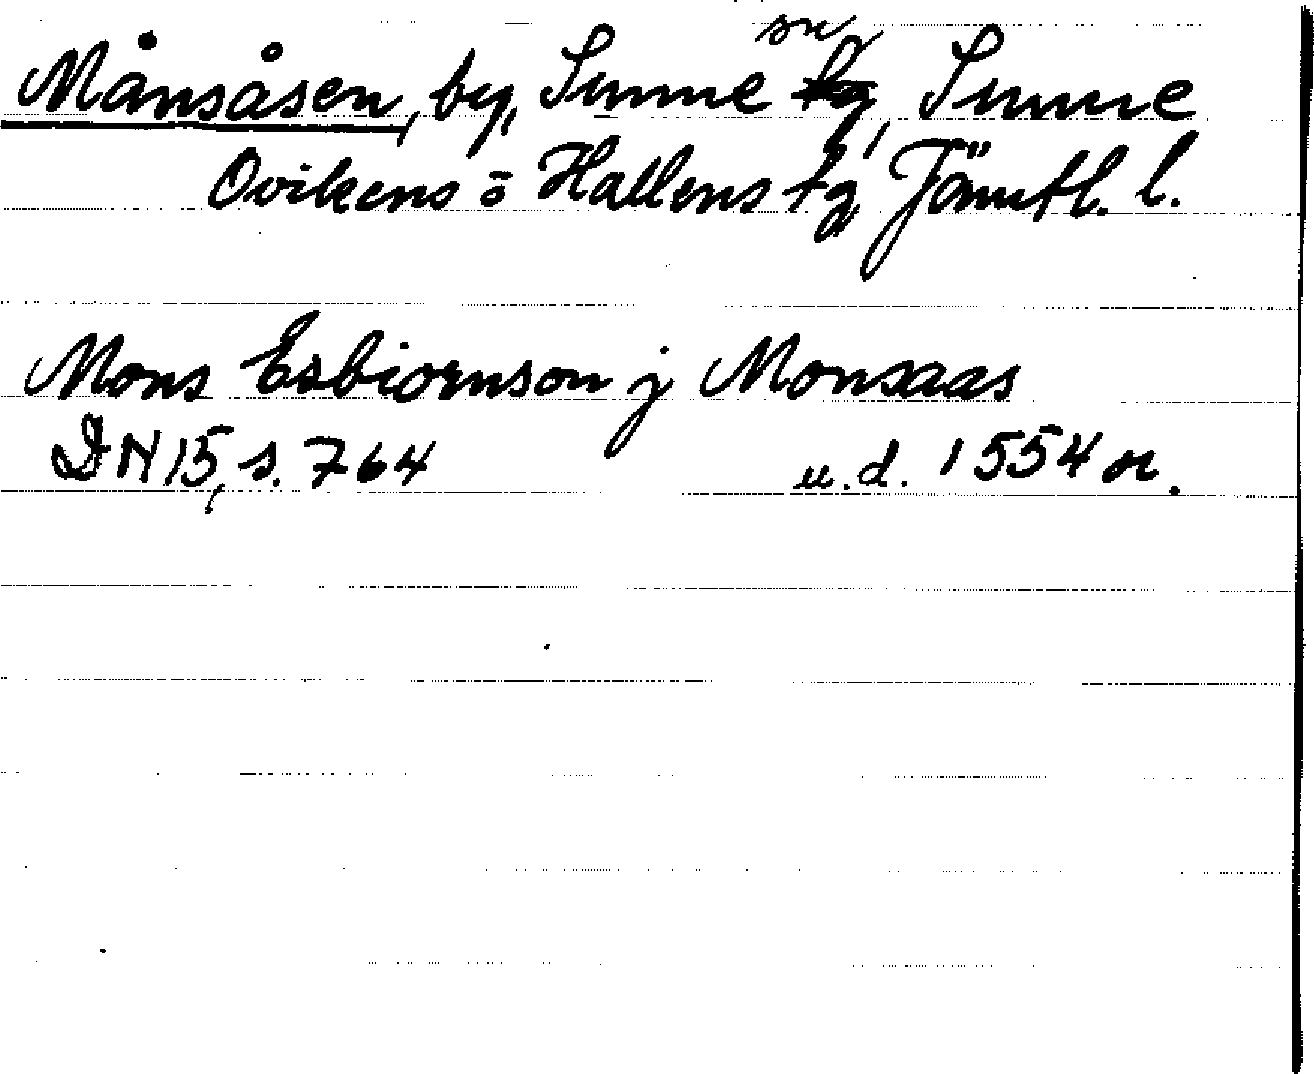 Månsåsen, by, Sunne sn, Sunne
Ovikens o Hallens tg Jämtl. l.
Mons Esbiornson j Monsaas
DN 15, s. 764 u.d. 1554 or.